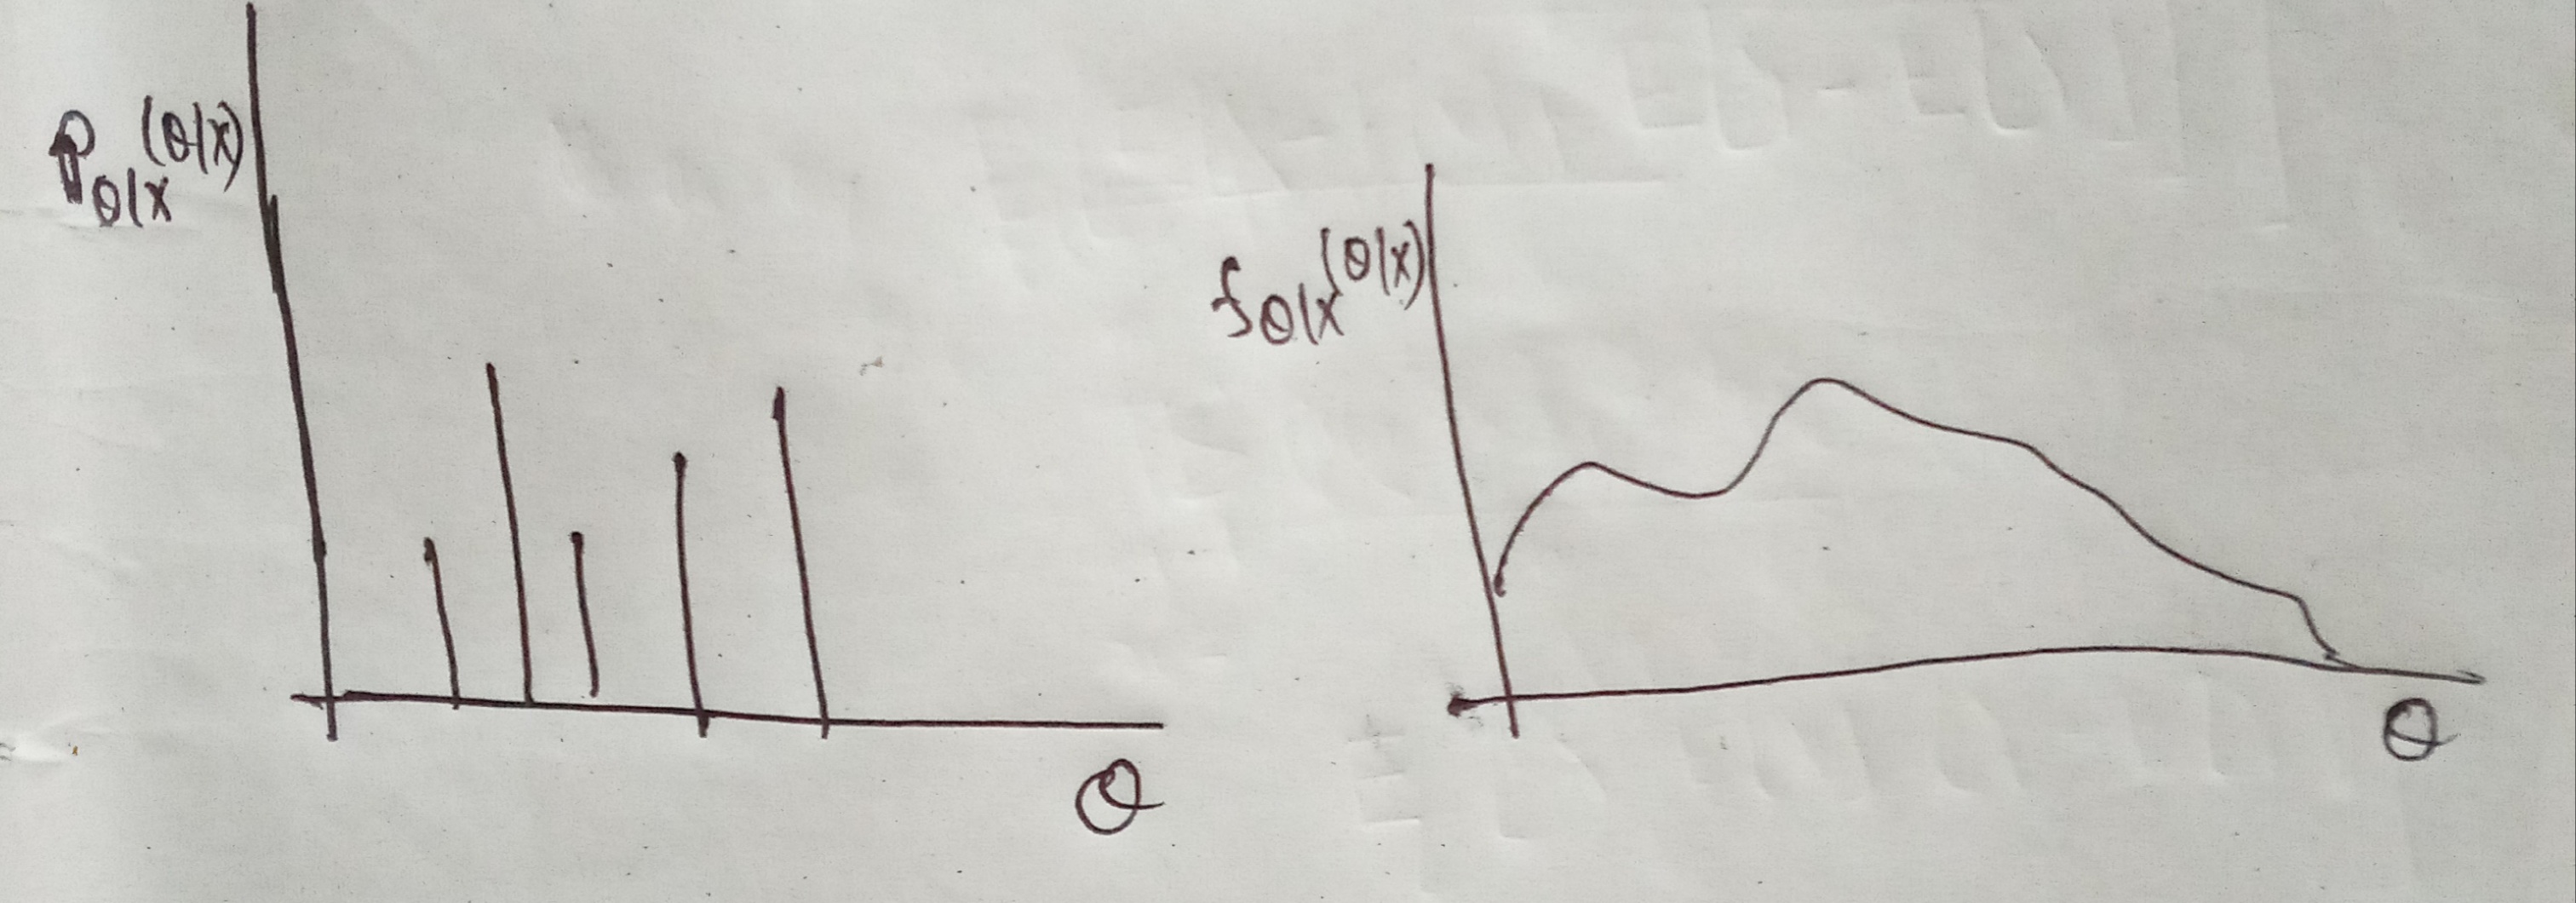 P_θ|X (θ|X)
f_θ|X (θ|X)
θ
θ